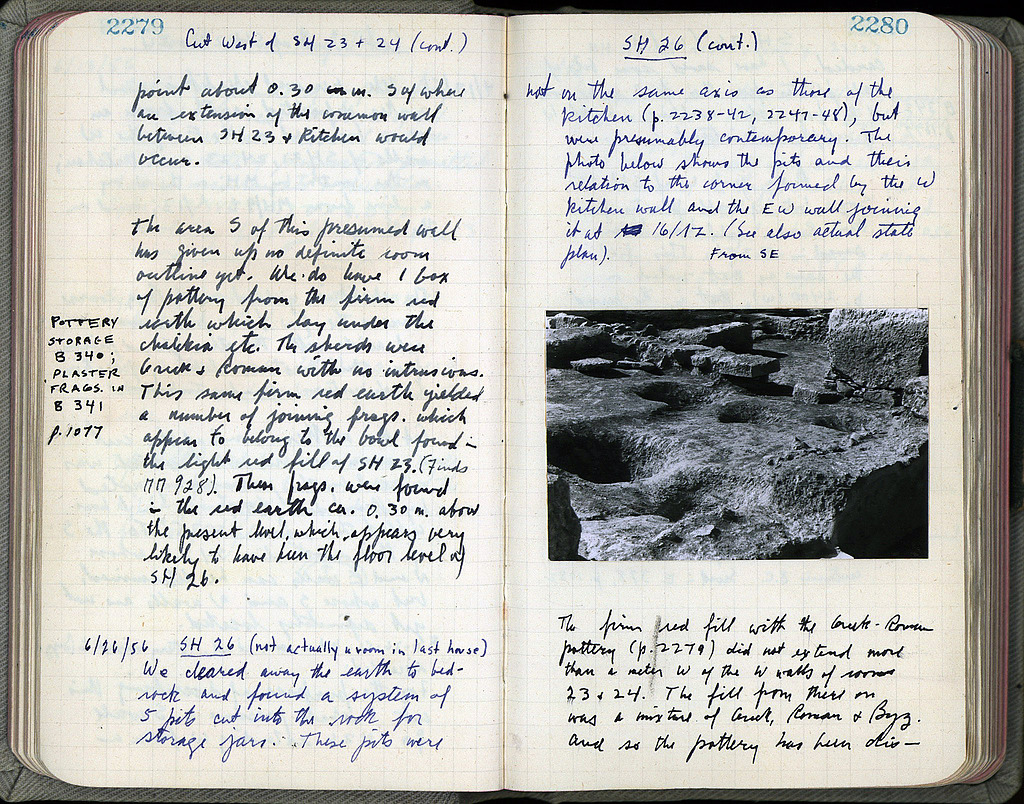 2279
Cut West of SH 23 + 24 (cont.)
point about 0.30 m. S of where
an extension of the common wall
between SH 23 & Kitchen would
occur.
The area S of this presumed wall
has given up no definite room
outline yet. We do have 1 box
of pottery from the firm red
earth which lay under the
etc. The sherds were
Greek & Roman with no intrusions.
This same firm red earth yielded
a number of joining frags. which
appear to belong to the bowl found in
the light red fill of SH 23. (Finds
MM 928). These frags. were found
in the red earth ca. 0.30 m. above
the present level, which appears very
likely to have been the floor level of
SH 26.
POTTERY
STORAGE
B 340;
PLASTER
FRAGS. IN
B 341
p. 1077
6/26/56 SH 26 (not actually a room in last house)
We cleared away the earth to bed-
rock and found a system of
5 pits cut into the rock for
storage jars. These pits were
2280
SH 26 (cont.)
not on the same axis as those of the
kitchen (p. 2238-42, 2247-48), but
were presumably contemporary. The
photo below shows the pits and their
relation to the corner formed by the W
kitchen wall and the EW wall joining
it at 16/17. (See also actual state
plan).
From SE
The firm red fill with the Greek-Roman
pottery (p. 2279) did not extend more
than a meter W of the W walls of rooms
23 & 24. The fill from there on
was a mixture of Greek, Roman & Byz.
and so the pottery has been dis-